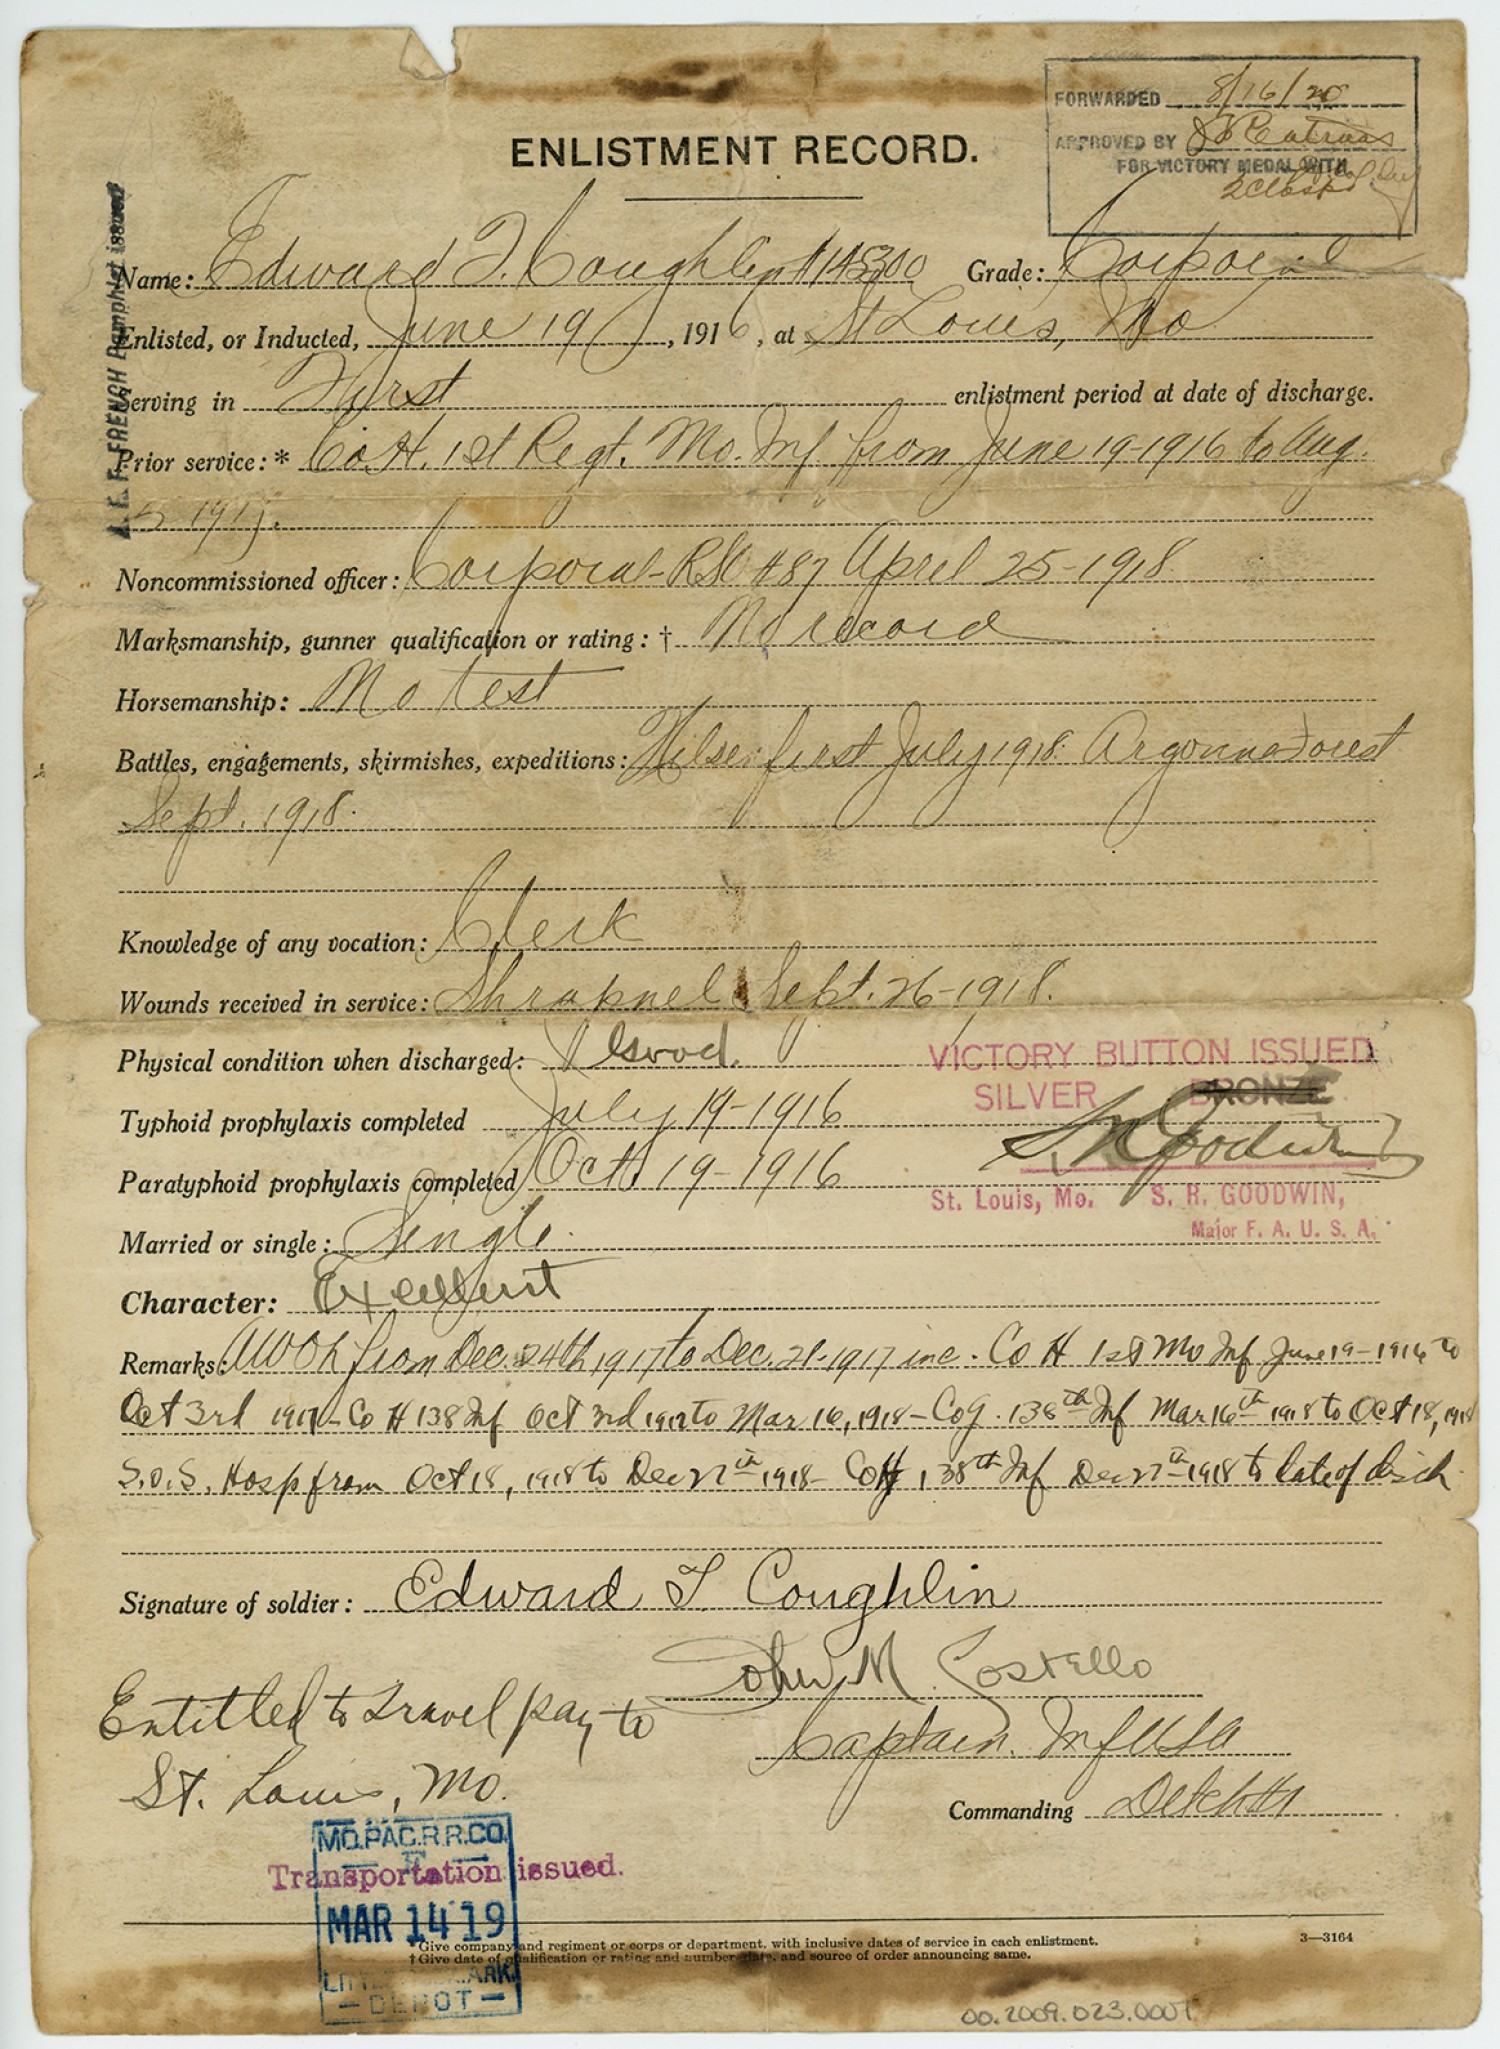 FORWARDED 8/16/20
APPROVED BY
FOR VICTORY MEDAL WITH
2 Clasps
ENLISTMENT RECORD.
A. E. F. FRENCH Pamphlet issued
Name: Edward T. Coughlin Grade: Corporal
Enlisted, or Inducted, June 19, 1916, at St Louis, Mo
Serving in First enlistment period at date of discharge.
Prior service: * Co H. 1st Regt. Mo. Inf. from June 19-1916 to Aug.
5 1917.
Noncommissioned officer: Corporal - RSO #87 April 25-1918
Marksmanship, gunner qualification or rating: † No record
Horsemanship: No test
Battles, engagements, skirmishes, expeditions: Hilsenfirst July 1918. Argonne Forest
Sept. 1918.
Knowledge of any vocation: Clerk
Wounds received in service: Shrapnel Sept. 26-1918.
Physical condition when discharged: Good.
VICTORY BUTTON ISSUED
SILVER BRONZE
Typhoid prophylaxis completed July 19-1916
S R Goodwin
Paratyphoid prophylaxis completed Oct. 19-1916
St. Louis, Mo. S. R. GOODWIN,
Major F. A. U. S. A.
Married or single: Single.
Character: Excellent
Remarks: AWOL from Dec. 24th 1917 to Dec. 1917 inc. Co H 1st Mo Inf June 19-1916 to
Oct 3rd 1917 - Co H 138 Inf Oct 3rd 1917 to Mar 16, 1918 - Co G. 138th Inf Mar 16th 1918 to Oct 18, 1918
S.O.S. Hosp from Oct 18, 1918 to Dec 27th 1918 - Co H 138th Inf Dec 27th 1918 to date of disch.
Signature of soldier: Edward T Coughlin
John M. Costello
Entitled to travel pay to
Captain. Inf USA
St. Louis, Mo.
Commanding
MO. PAC. R.R. CO.
Transportation issued.
MAR 14 19
* Give company and regiment or corps or department, with inclusive dates of service in each enlistment.
3—3164
† Give date of qualification or rating and number, date, and source of order announcing same.
ARK.
— DEPOT —
00.2009.023.0007